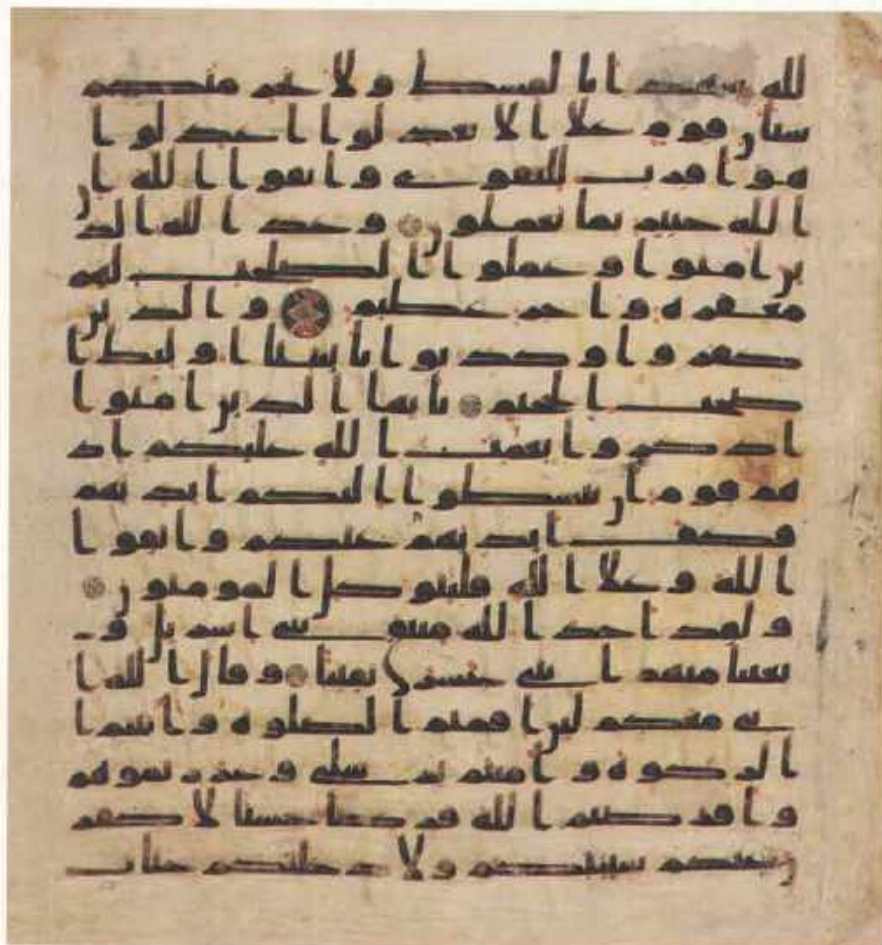 لله شهدا بالقسط ولا يجرمنكم
شنان قوم علا الا تعدلوا اعدلوا
هو اقرب للتقوى واتقوا الله ان
الله خبير بما تعملون وعد الله الذ
ين امنوا وعملوا الصلحت لهم
مغفرة واجر عظيم والذين
كفروا وكذبوا بايتنا اوليك ا
صحب الجحيم يايها الذين امنوا
اذكروا نعمت الله عليكم اذ
هم قوم ان يبسطوا اليكم ايديهم
فكف ايديهم عنكم واتقوا
الله وعلا الله فليتوكل المومنون
ولقد اخذ الله ميثق بني اسريل و
بعثنا منهم اثني عشر نقيبا وقال الله ا
ني معكم لين اقمتم الصلوة واتيتم
الزكوة وامنتم برسلي وعزرتموهم
واقرضتم الله قرضا حسنا لاكفر
ن عنكم سيتكم ولادخلنكم جنت